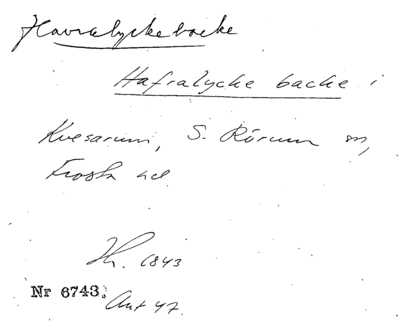 Havralyckebacke
Hafralycke backe i
Kvesarum, S. Rörum sn,
Frosta hd.
1843
Nr 6743.
Ant 47.